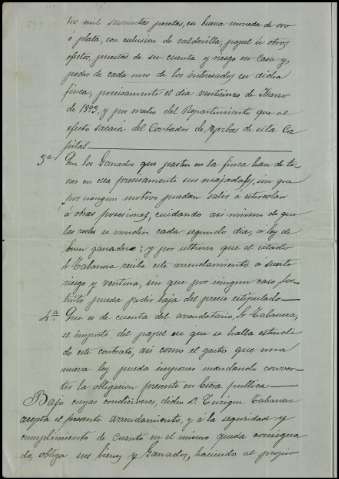 tro mil seiscientas pesetas, en buena moneda de oro
ó plata, con exclusion de calderilla, papel ú otros
efectos, puestas de su cuenta y riesgo en casa y
poder de cada uno de los interesados en dicha
finca, precisamente el dia veintiuno de Marzo
de 1893, y por medio del Repartimiento que al
efecto sacará del Contador de Yerba de esta Ca
pital
3ª Que los Ganados que pasten en la finca han de te
ner en ella precisamente sus majadas, sin que
por ningun motivo puedan salir á
ó otras posesiones, cuidando asi mismo de que
las redes se muden cada segundo dia, á ley de
buen ganadero; y por ultimo que el citado
Sr. Cabanas recibe este arrendamiento á suerte
riesgo y ventura, sin que por ningun caso, for
tuito pueda pedir baja del precio estipulado
4ª Que es de cuenta del arrendatario, Sr. Cabanas,
el importe del papel en que se halla estendi
do este contrato, asi como el gasto que una
nueva ley pueda imponer mandando conver
tir la obligacion presente en Escra publica
Bajo cuyas condiciones dicho D. Enrique Cabanas
acepta el presente arrendamiento, y á la seguridad y
cumplimiento de cuanto en el mismo queda consigna
do, obliga sus bienes y Ganados, haciendo al propio